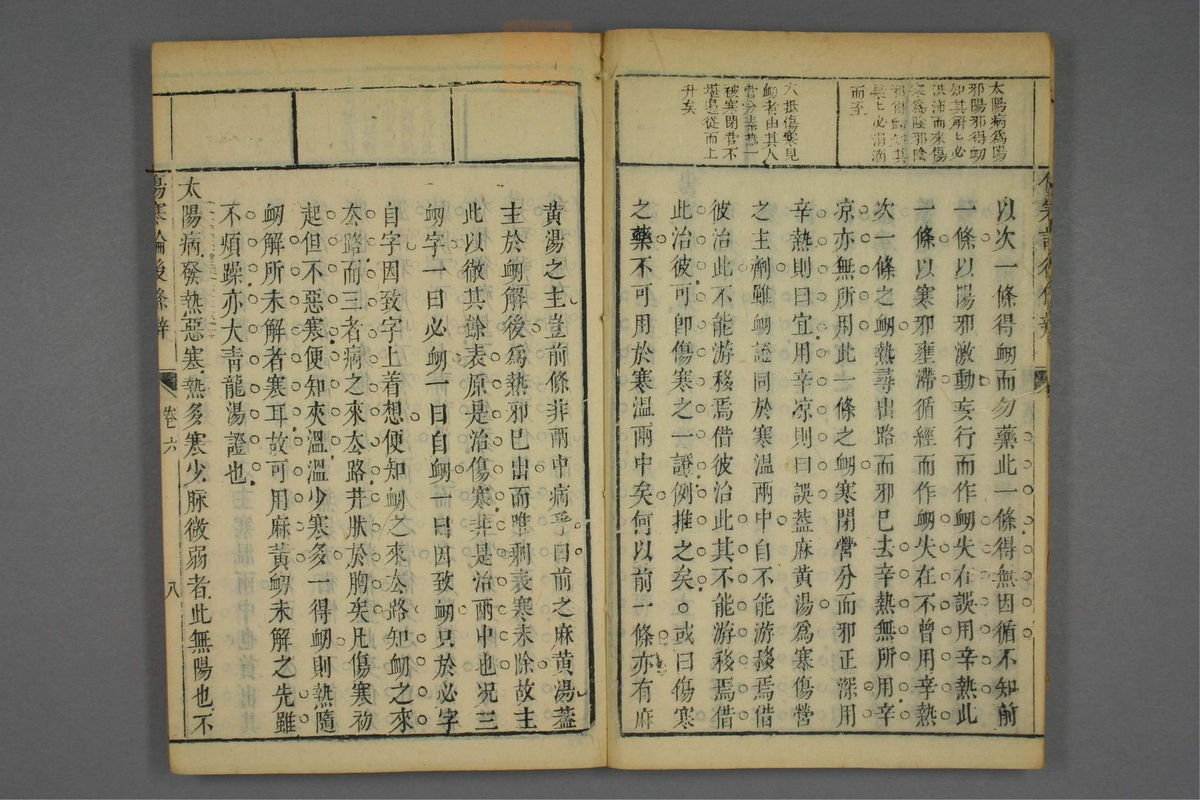 太陽病爲陽
邪陽邪得衂
知其解上必
洪沛而來傷
寒爲陰邪陰
邪得衂
必涓滴
而至
大抵傷寒見
衂者由其人
營分素熱一
被寒閉營不
堪遏從而上
升矣
以次一條得衂而勿藥此一條得無因循不知前
一條以陽邪激動妄行而作衂失在誤用辛熱此
一條以寒邪壅滯循經而作衂失在不曾用辛熱
次一條之衂熱尋出路而邪巳去辛熱無所用辛
凉亦無所用此一條之衂寒閉營分而邪正深用
辛熱則曰宜用辛凉則曰誤葢麻黃湯爲寒傷營
之主劑雖衂證同於寒溫兩中自不能游移焉借
彼治此不能游移焉借彼治此其不能游移焉借
此治彼可卽傷寒之一證例推之矣○或曰傷寒
之藥不可用於寒溫兩中矣何以前一條亦有麻
黃湯之主豈前條非兩中病乎曰前之麻黃湯葢
主於衂解後爲熱邪巳出而唯剩表寒未除故主
此以徹其餘表原是治傷寒非是治兩中也况三
衂字一曰必衂一曰自衂一曰因致衂只於必字
自字因致字上着想便知衂之來厺路知衂之來
厺路而三者病之來厺路井肰於胸矣凡傷寒初
起但不惡寒便知夾溫溫少寒多一得衂則熱隨
衂解所未解者寒耳故可用麻黃衂未解之先雖
不煩躁亦大靑龍湯證也
太陽病發熱惡寒熱多寒少脉微弱者此無陽也不
傷寒論後條辨
卷六
八